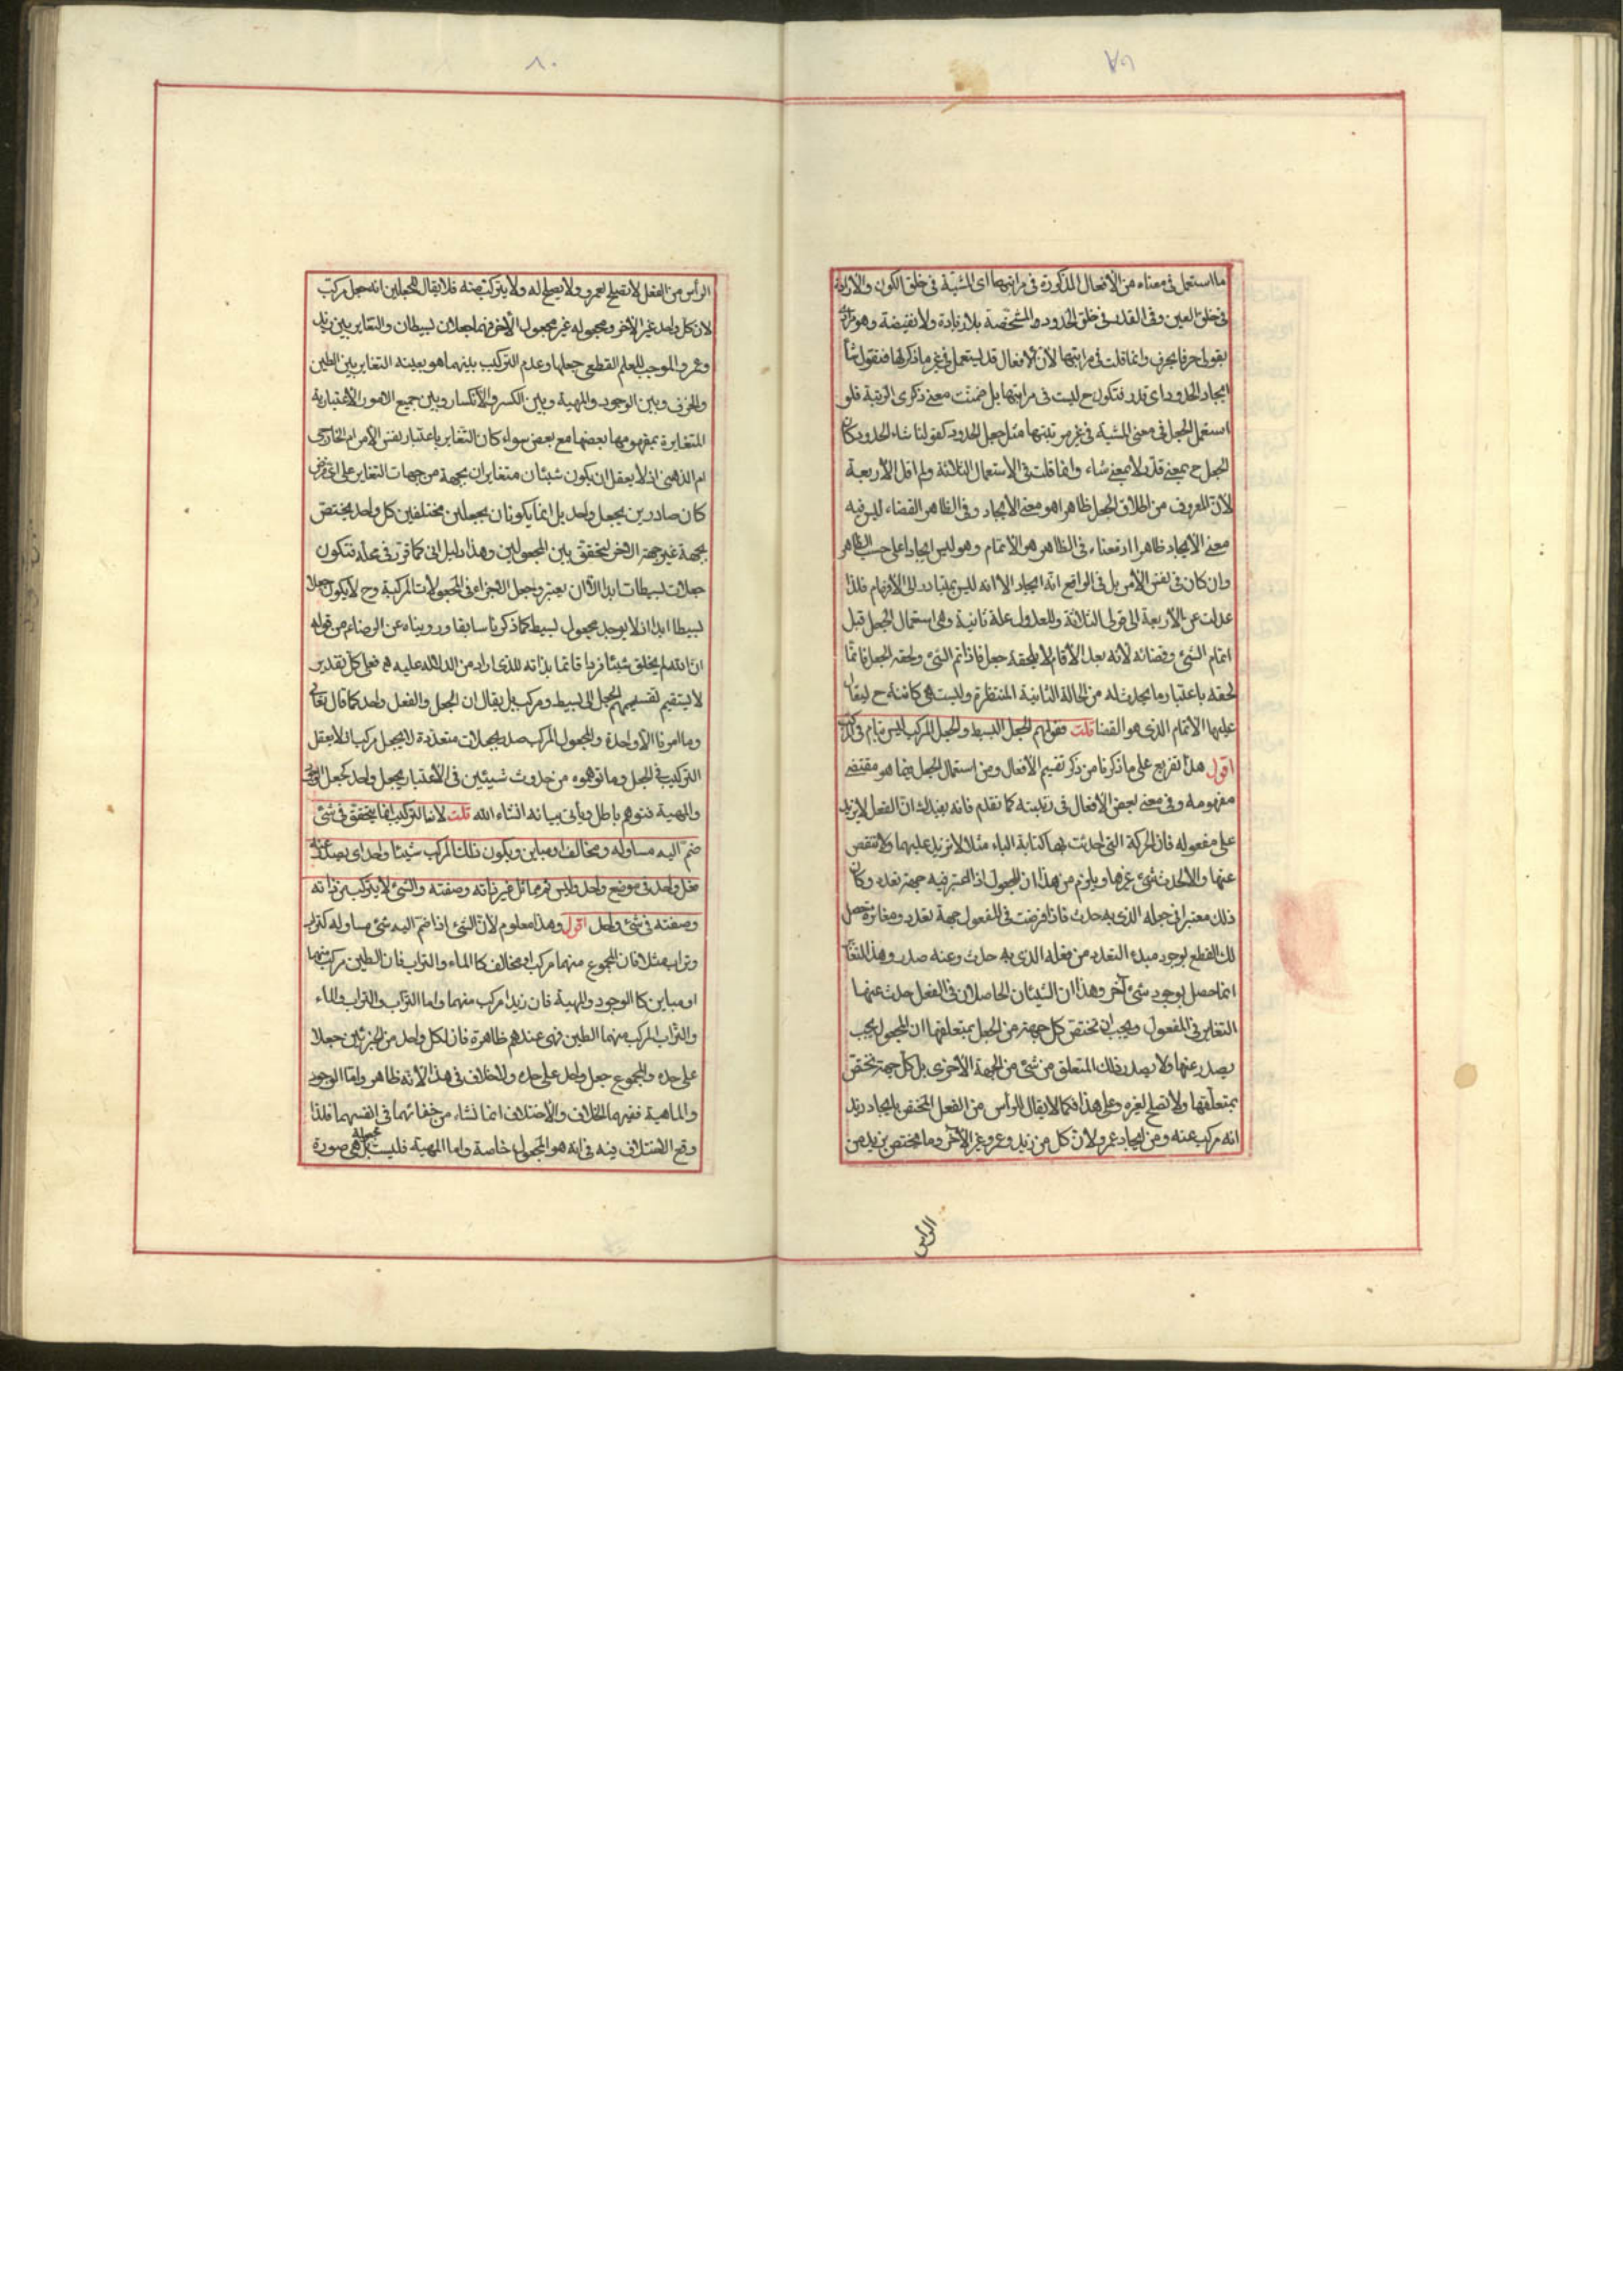 ٧٩
ما استعمل فى معناه من الأفعال المذكورة فى مراتبها اى المشيّة فى خلق الكون والارادة
فى خلق العين وفى القدر فى خلق الحدود والمشخّصة بلا زيادة ولا نقيضة وهو
بقولى حرفا بحرف وانما قلت فى مراتبها لأن الأفعال قد يستعمل فى غير ما ذكر لها فتقول شاء
ايجاد الحدود اى قدر فتكون ح ليست فى مراتبها بل ضمنت معنى ذكرى الرتبة فلو
استعمل الجعل فى معنى المشية فى غير مرتبتها مثل جعل الحدود كقولنا شاء الحدود كان
الجعل ح بمعنى قدر لا بمعنى شاء وانما قلت فى الاستعمال الثلاثة ولم اقل الأربعة
لأنّ المعروف من اطلاق الجعل ظاهرا هو معنى الايجاد وفى الظاهر القضاء ليس فيه
معنى الايجاد ظاهرا اذ معناه فى الظاهر هو الاتمام وهو ليس ايجادا على حسب الظاهر
وان كان فى نفس الأمر بل فى الواقع انه ايجاد الا انه ليس بمتبادر الى الأفهام فلذا
عدلت عن الأربعة الى قولى الثلاثة وللعدول علة ثانية وهى استعمال الجعل قبل
اتمام الشئ وقضائه لأنه بعد الأتمام لا يلحقه جعل فاذا تم الشئ ولحقه الجعل فانما
لحقه باعتبار ما يحدث له من الحالة الثانية المنتظرة وليست هى كائنة ح ليقال
عليها الأتمام الذى هو القضا قلت فقولهم الجعل البسيط والجعل المركب ليس بتام فى
اقول هذا تفريع على ما ذكرنا من ذكر تقسيم الأفعال ومن استعمال الجعل فيما هو مقتضى
مفهومه وفى معنى بعض الأفعال فى رتبته كما تقدم فانه يفيدك انّ الفعل لا يزيد
على مفعوله فان الحركة التى احدثت بها كتابة الباء مثلا لا تزيد عليها ولا تنقص
عنها والا لحدث شئ غيرها ويلزم من هذا ان المجعول اذا اعتبر فيه جهة تعدد وكان
ذلك معتبرا فى جعله الذى به حدث فاذا فرضت فى المفعول جهة تعدد ومغايرة حصل
لك القطع بوجود مبدء التعدد من فعله الذى به حدث وعنه صدر وهذا التغاير
انما حصل بوجود شئ آخر وهذا ان الشيئان الحاصلان فى الفعل حدث عنهما
التغاير فى المفعول ويجب ان تختص كل جهة من الجعل بمتعلقها ان المجعول يجب
يصدر عنها ولا يصدر ذلك المتعلق من شئ من الجهة الأخرى بل كل جهة تختص
بمتعلقها ولا تصلح لغيره وعلى هذا فكما لا يقال الرأس من الفعل المختص بايجاد زيد
انه مركب عنه ومن ايجاد عمرو لأن كل من زيد وعمرو غير الآخر وما يختص بزيد من
الرأس
٨٠
الرأس من الفعل لا تصلح لعمرو ولا يصلح له ولا يتركب منه فلا يقال للجعلين انه جعل مركب
لان كل واحد غير الآخر ومجعوله غير مجعول الآخر فهما جعلان بسيطان والتغاير بين زيد
وعمرو الموجب للعلم القطعى جعلها وعدم التركيب بينهما هو بعينه التغاير بين الطين
والخزف وبين الوجود والمهية وبين الكسر والأنكسار وبين جميع الامور الأعتبارية
المتغايرة بمفهومها بعضها مع بعض سواء كان التغاير باعتبار نفس الأمر ام الخارجى
ام الذهنى اذ لا يعقل ان يكون شيئان متغايران بجهة من جهات التغاير على اى فرض
كان صادرين بجعل واحد بل انما يكونان بجعلين مختلفين كل واحد يختص
بجهة غير جهة الآخر لتحقق بين المجعولين وهذا دليل انى كما قرر فى محله فتكون
جعلات بسيطات ابدا الا ان يعتبر وجعل الاجزاء فى المجعولات المركبة وح لا يكون جعلا
بسيطا ابدا اذ لا يوجد مجعول بسيط كما ذكرنا سابقا ورويناه عن الرضا ع من قوله
ان الله لم يخلق شيئا فردا قائما بذاته للذى اراد من الدلالة عليه ه فعلى كل تقدير
لا يستقيم تقسيمهم الجعل الى بسيط ومركب بل يقال ان الجعل والفعل واحد كما قال تعالى
وما امرنا الا واحدة والمجعول المركب صدر بجعلات متعددة لا بجعل مركب اذ لا يعقل
التركيب فى الجعل وما توهموه من حدوث شيئين فى الأعتبار بجعل واحد كجعل الوجود
والمهية فتوهم باطل ويأتى بيانه انشاء الله قلت لان التركيب انما يتحقق فى شئ
ضم اليه مساوله ومخالف او مباين ويكون ذلك المركب شيئا واحدا يصدر عنه
فعل واحد فى موضع واحد وليس ثم مماثل غير ذاته وصفته والشئ لا يتركب من ذاته
وصفته فى شئ واحد اقول وهذا معلوم لأن الشئ اذا ضم اليه شئ مساو له كتراب
وتراب مثلا فان المجموع منهما مركب او مخالف كالماء والتراب فان الطين مركب منهما
او مباين كالوجود والمهية فان زيدا مركب منهما واما التراب والتراب والماء
والتراب المركب منهما الطين فهى عندهم ظاهرة فان لكل واحد من الجزئين جعلا
على حده وللمجموع جعل واحد على حده ولا خلاف فى هذا لأنه ظاهر واما الوجود
والماهية ففيهما الخلاف والأختلاف انما نشاء من خفائهما فى انفسهما فلذا
وقع الاختلاف فيه فى انه هو المجعول خاصة واما المهية فليست مجعولة بل هى صورة